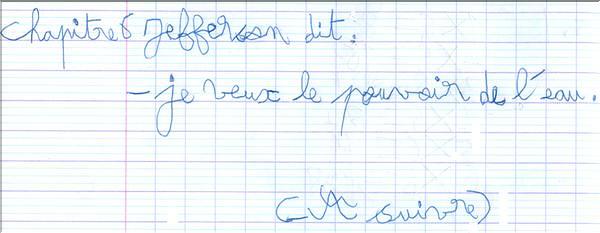 Chapitre 5 Jefferson dit :
- je veux le pouvoir de l'eau.
(A suivre)